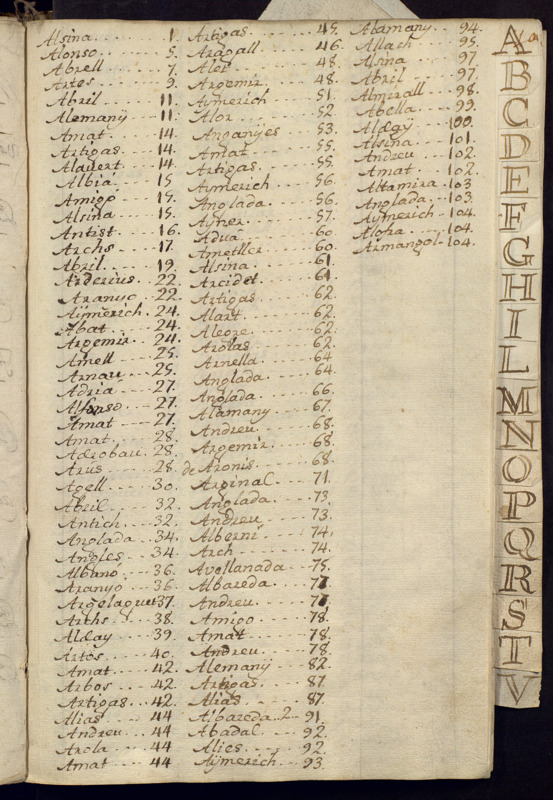 Alsina 1.
Alonso 5.
Abrell 7.
Artes 9.
Abril 11.
Alemanÿ 11.
Amat 14.
Artigas 14.
Alavert 14.
Albiá 15
Amigo 15.
Alsina 15.
Antist 16.
Archs 17.
Abril 19.
Arderius 22.
Aranyo 22.
Aÿmerich 24.
Abat 24.
Argemir 24.
Amell 25.
Arnau 25.
Adriá 27.
Alfonso 27.
Amat 27.
Amat 28.
Adrobau 28.
Arus 28.
Agell 30.
Abril 32.
Antich 32.
Anglada 34.
Angles 34.
Albanó 36.
Aranyo 36.
Argelaguer 37.
Arths 38.
Aldaÿ 39.
Artós 40.
Amat 42.
Arbos 42.
Artigas 42.
Alias 44
Andreu 44
Arola 44
Amat 44
Artigas 45.
Aragall 46.
Aler 48.
Argemir 48.
Aÿmerich 51.
Alor 52.
Anganÿes 53.
Amat 55.
Artigas 55.
Aimerich 56.
Anglada 56.
Aÿner 57.
Aduá 60
Ametller 60.
Alsina 61.
Arcidet 61.
Artigas 62.
Alart 62.
Alegre 62.
Arolas 62.
Arnella 64
Anglada 64.
Anglada 66.
Alamany 67.
Andreu 68.
Argemir 68.
de Aronis 68.
Arpinal 71.
Anglada 73.
Andreu 73.
Alberni 74.
Arch 74.
Avellanada 75.
Albareda 77.
Andreu 78.
Amigo 78.
Amat 78.
Andreu 78.
Alemanÿ 82.
Artigas 87
Alias 87.
Albareda 2 91.
Abadal 92.
Alies 92.
Aÿmerich 93.
Alamany 94.
Allach 95.
Alsina 97
Abril 97.
Almirall 98.
Abella 99.
Alegÿ 100.
Alsina 101.
Andreu 102.
Amat 102.
Altamira 103
Anglada 103.
Aÿmerich 104.
Aloha 104.
Armangol 104.
A
B
C
D
E
F
G
H
I
L
M
N
O
P
Q
R
S
T
V